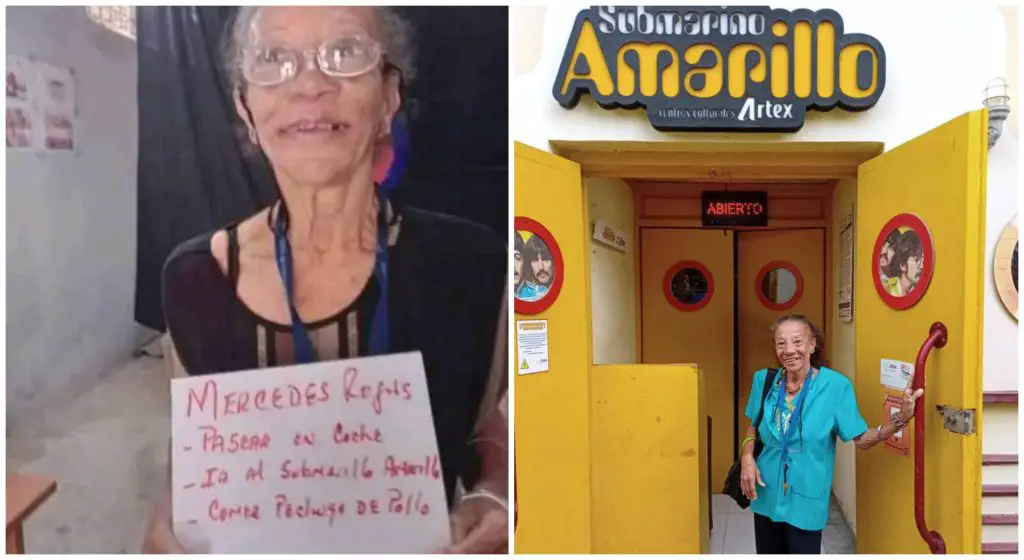 MERCEDES Rojas
- PASEAR en Coche
- Ir Al Submarillo Amarillo
- Comer Pechuga DE Pollo
Submarino
Amarillo
centros culturales Artex
ABIERTO